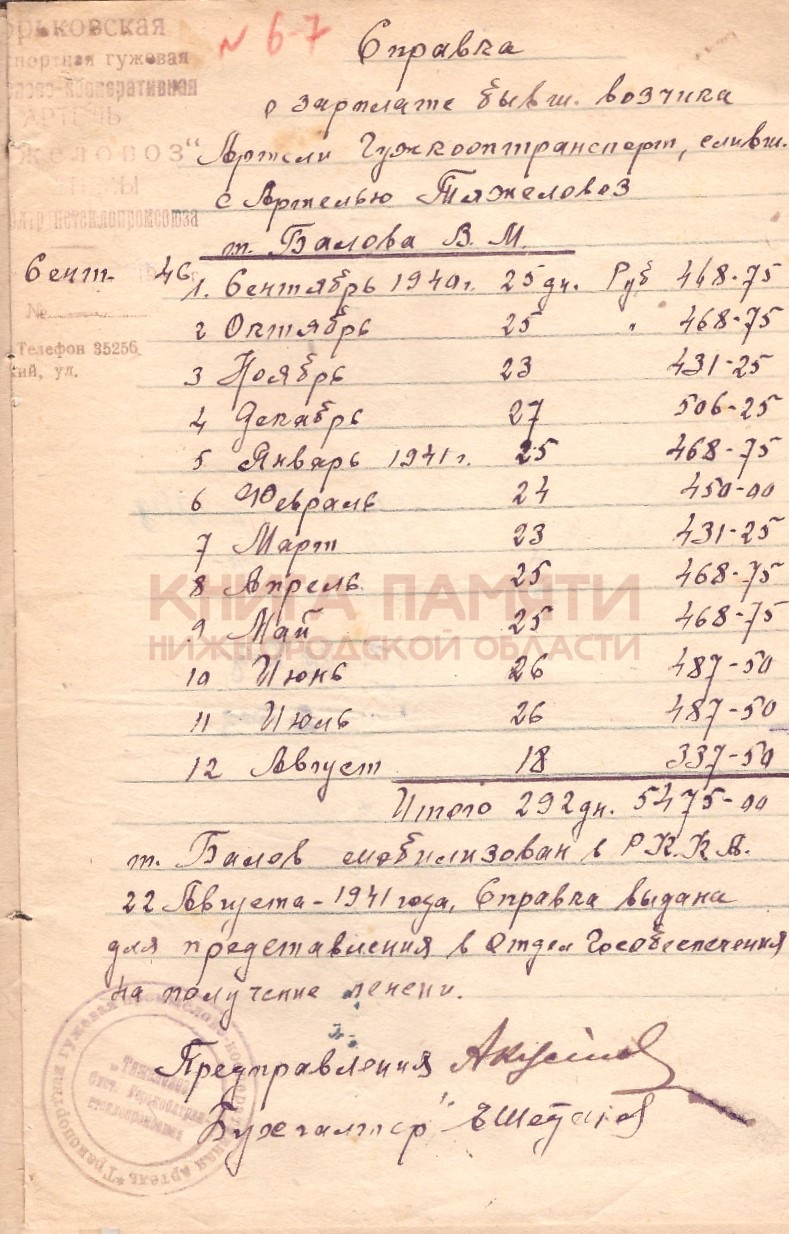 № 6-7
Справка
о зарплате бывш. возчика
Артели Гужкооптранспорт, сливш.
с Артелью Тяжеловоз
т. Балова В. М.
орьковская
спортная гужевая
кооперативная
АРТЕЛЬ
ЖЕЛОВОЗ"
Сент. 46 г.
№
Телефон 35256
кий, ул.
1. Сентябрь 1940 г. 25 дн. Руб 468-75
2 Октябрь 25 " 468-75
3 Ноябрь 23 431-25
4 Декабрь 27 506-25
5 Январь 1941 г. 25 468-75
6 Февраль 24 450-00
7 Март 23 431-25
8 Апрель 25 468-75
9 Май 25 468-75
10 Июнь 26 487-50
11 Июль 26 487-50
12 Август 18 337-50
Итого 292 дн. 5475-00
т. Балов смобилизован в Р.К.К.А.
22 Августа - 1941 года, Справка выдана
для представления в Отдел Гособеспечения
на получение пенсии.
Предправления
Бухгалтер
КНИГА ПАМЯТИ
НИЖЕГОРОДСКОЙ ОБЛАСТИ
Транспортная гужевая артель
Тяжеловоз